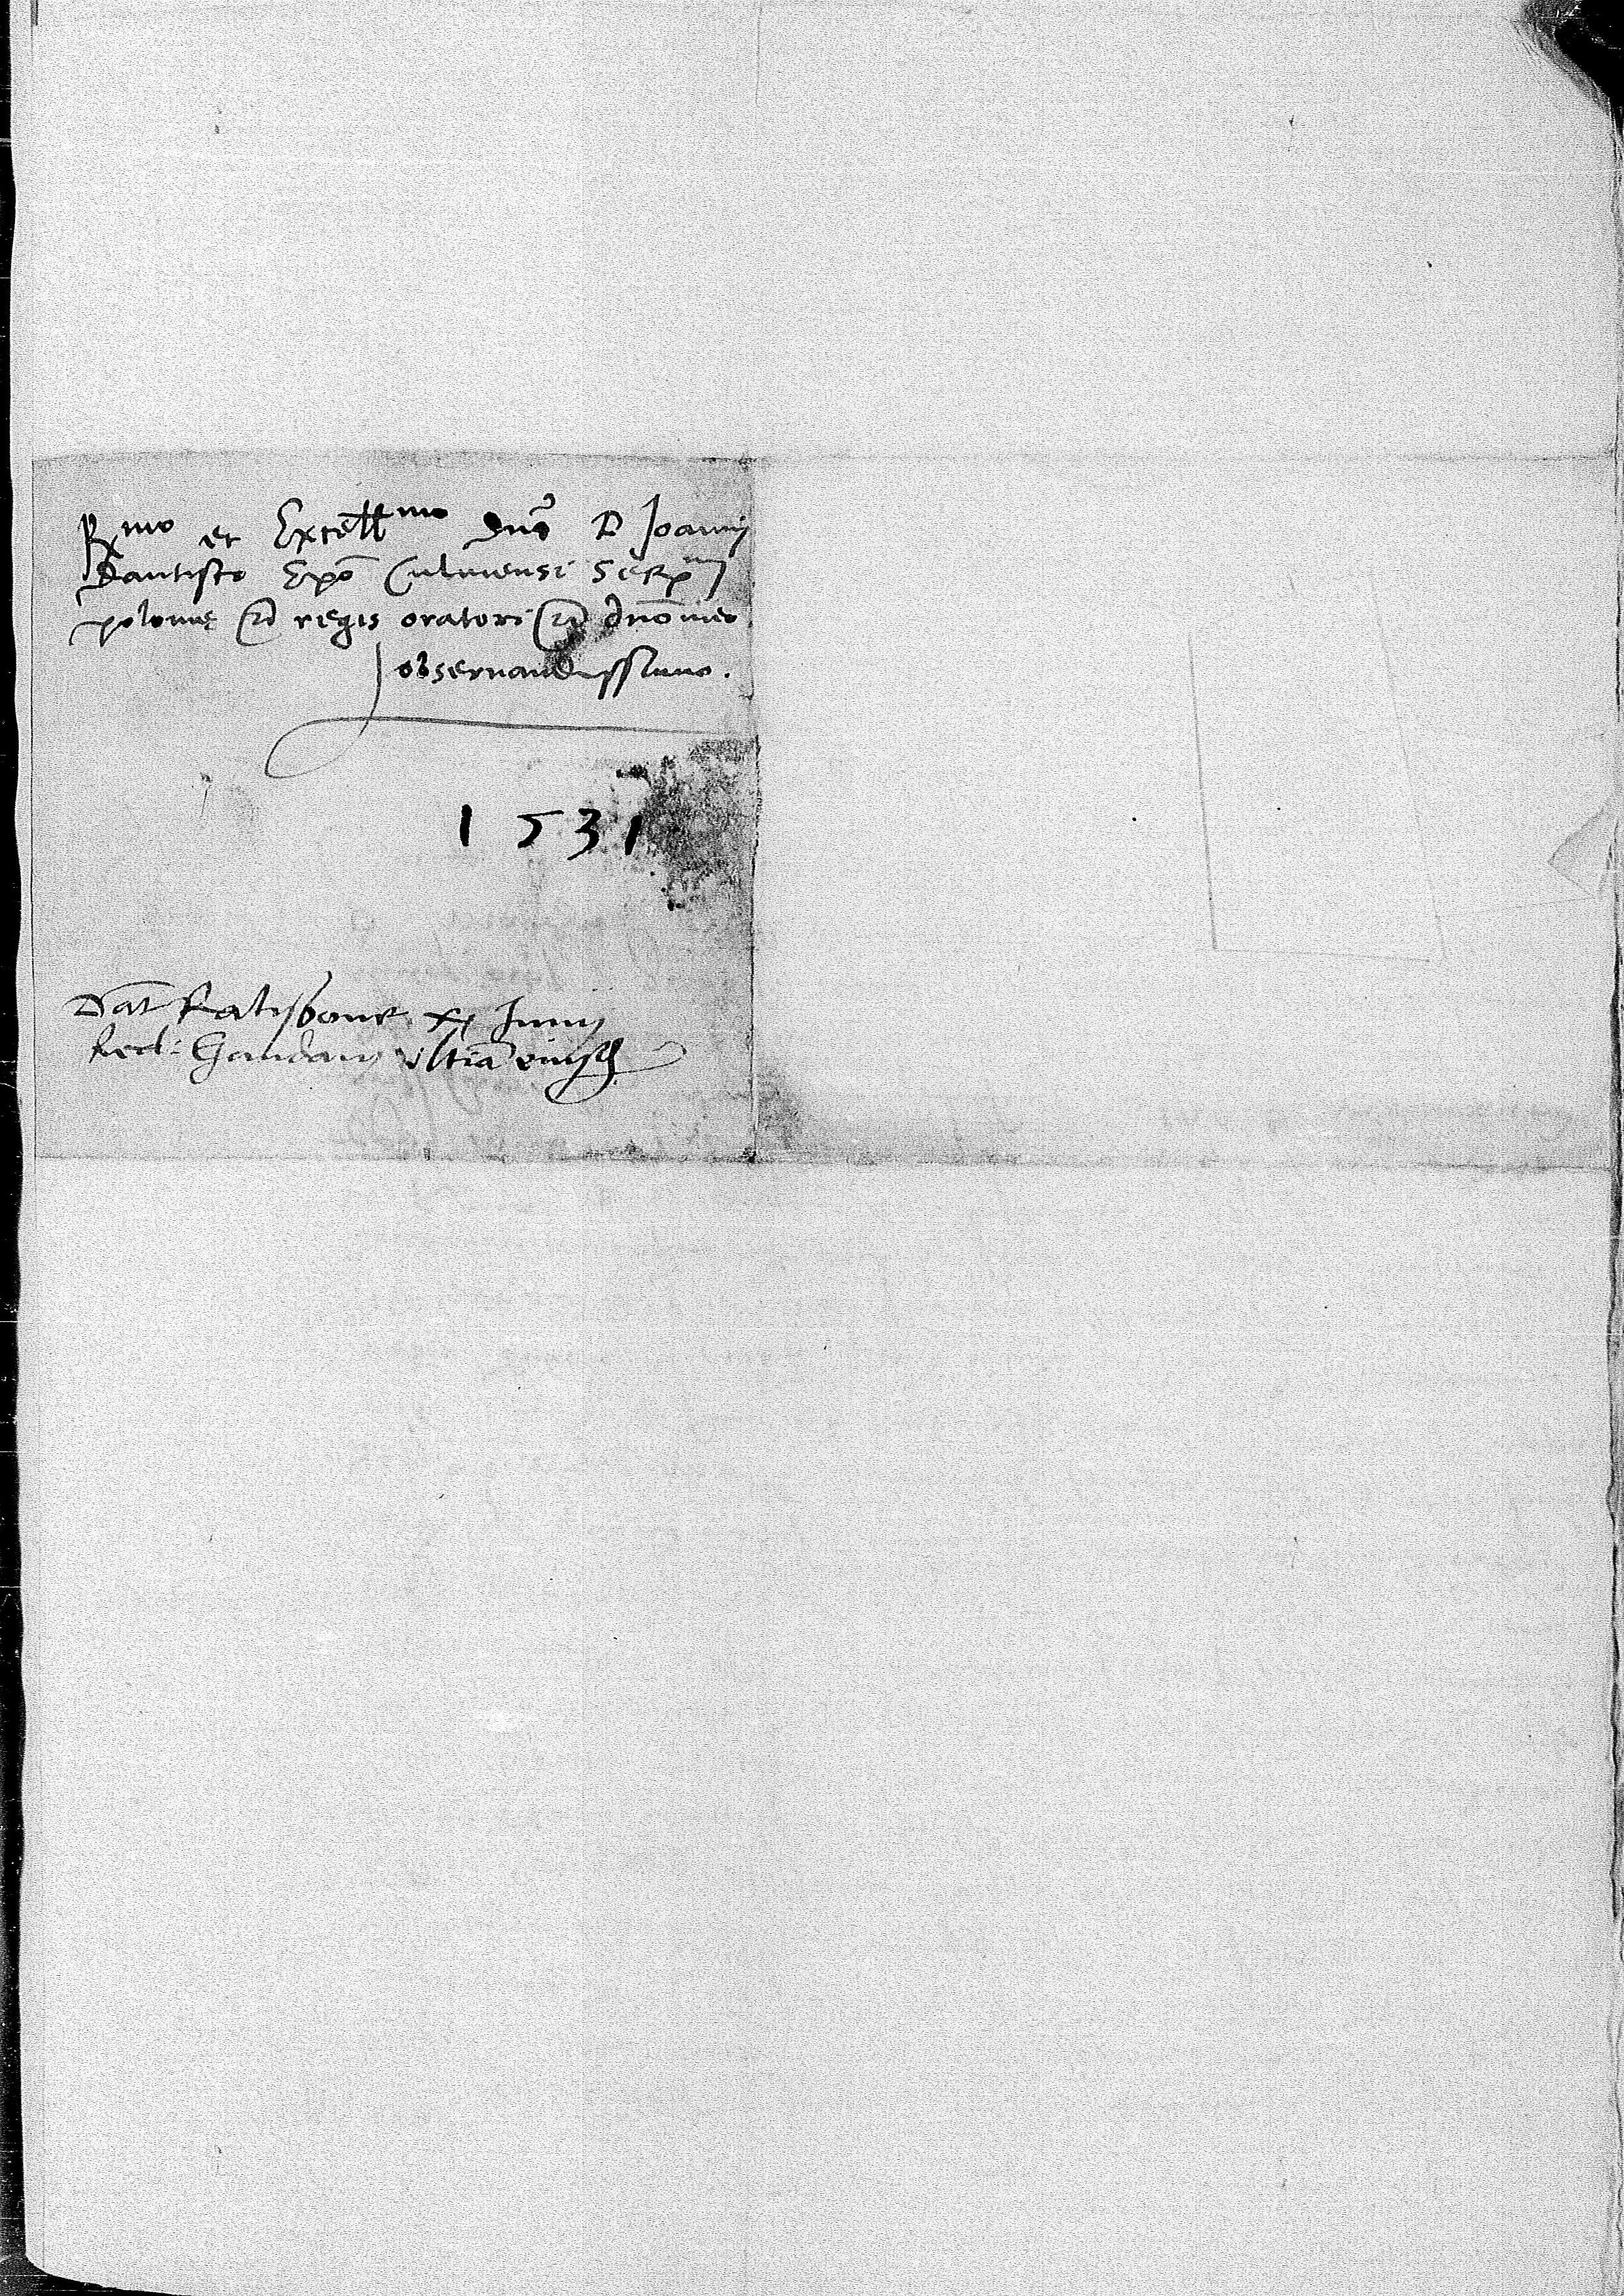 R^mo et Excell^mo Dno D Joanni
Dantisco Epo Culmensi Ser^mi
polonie &c regis oratori &c dno meo
observandissimo.
1531
Dat Ratisbone XI Junii
Red: Gandavi ultia eiusd